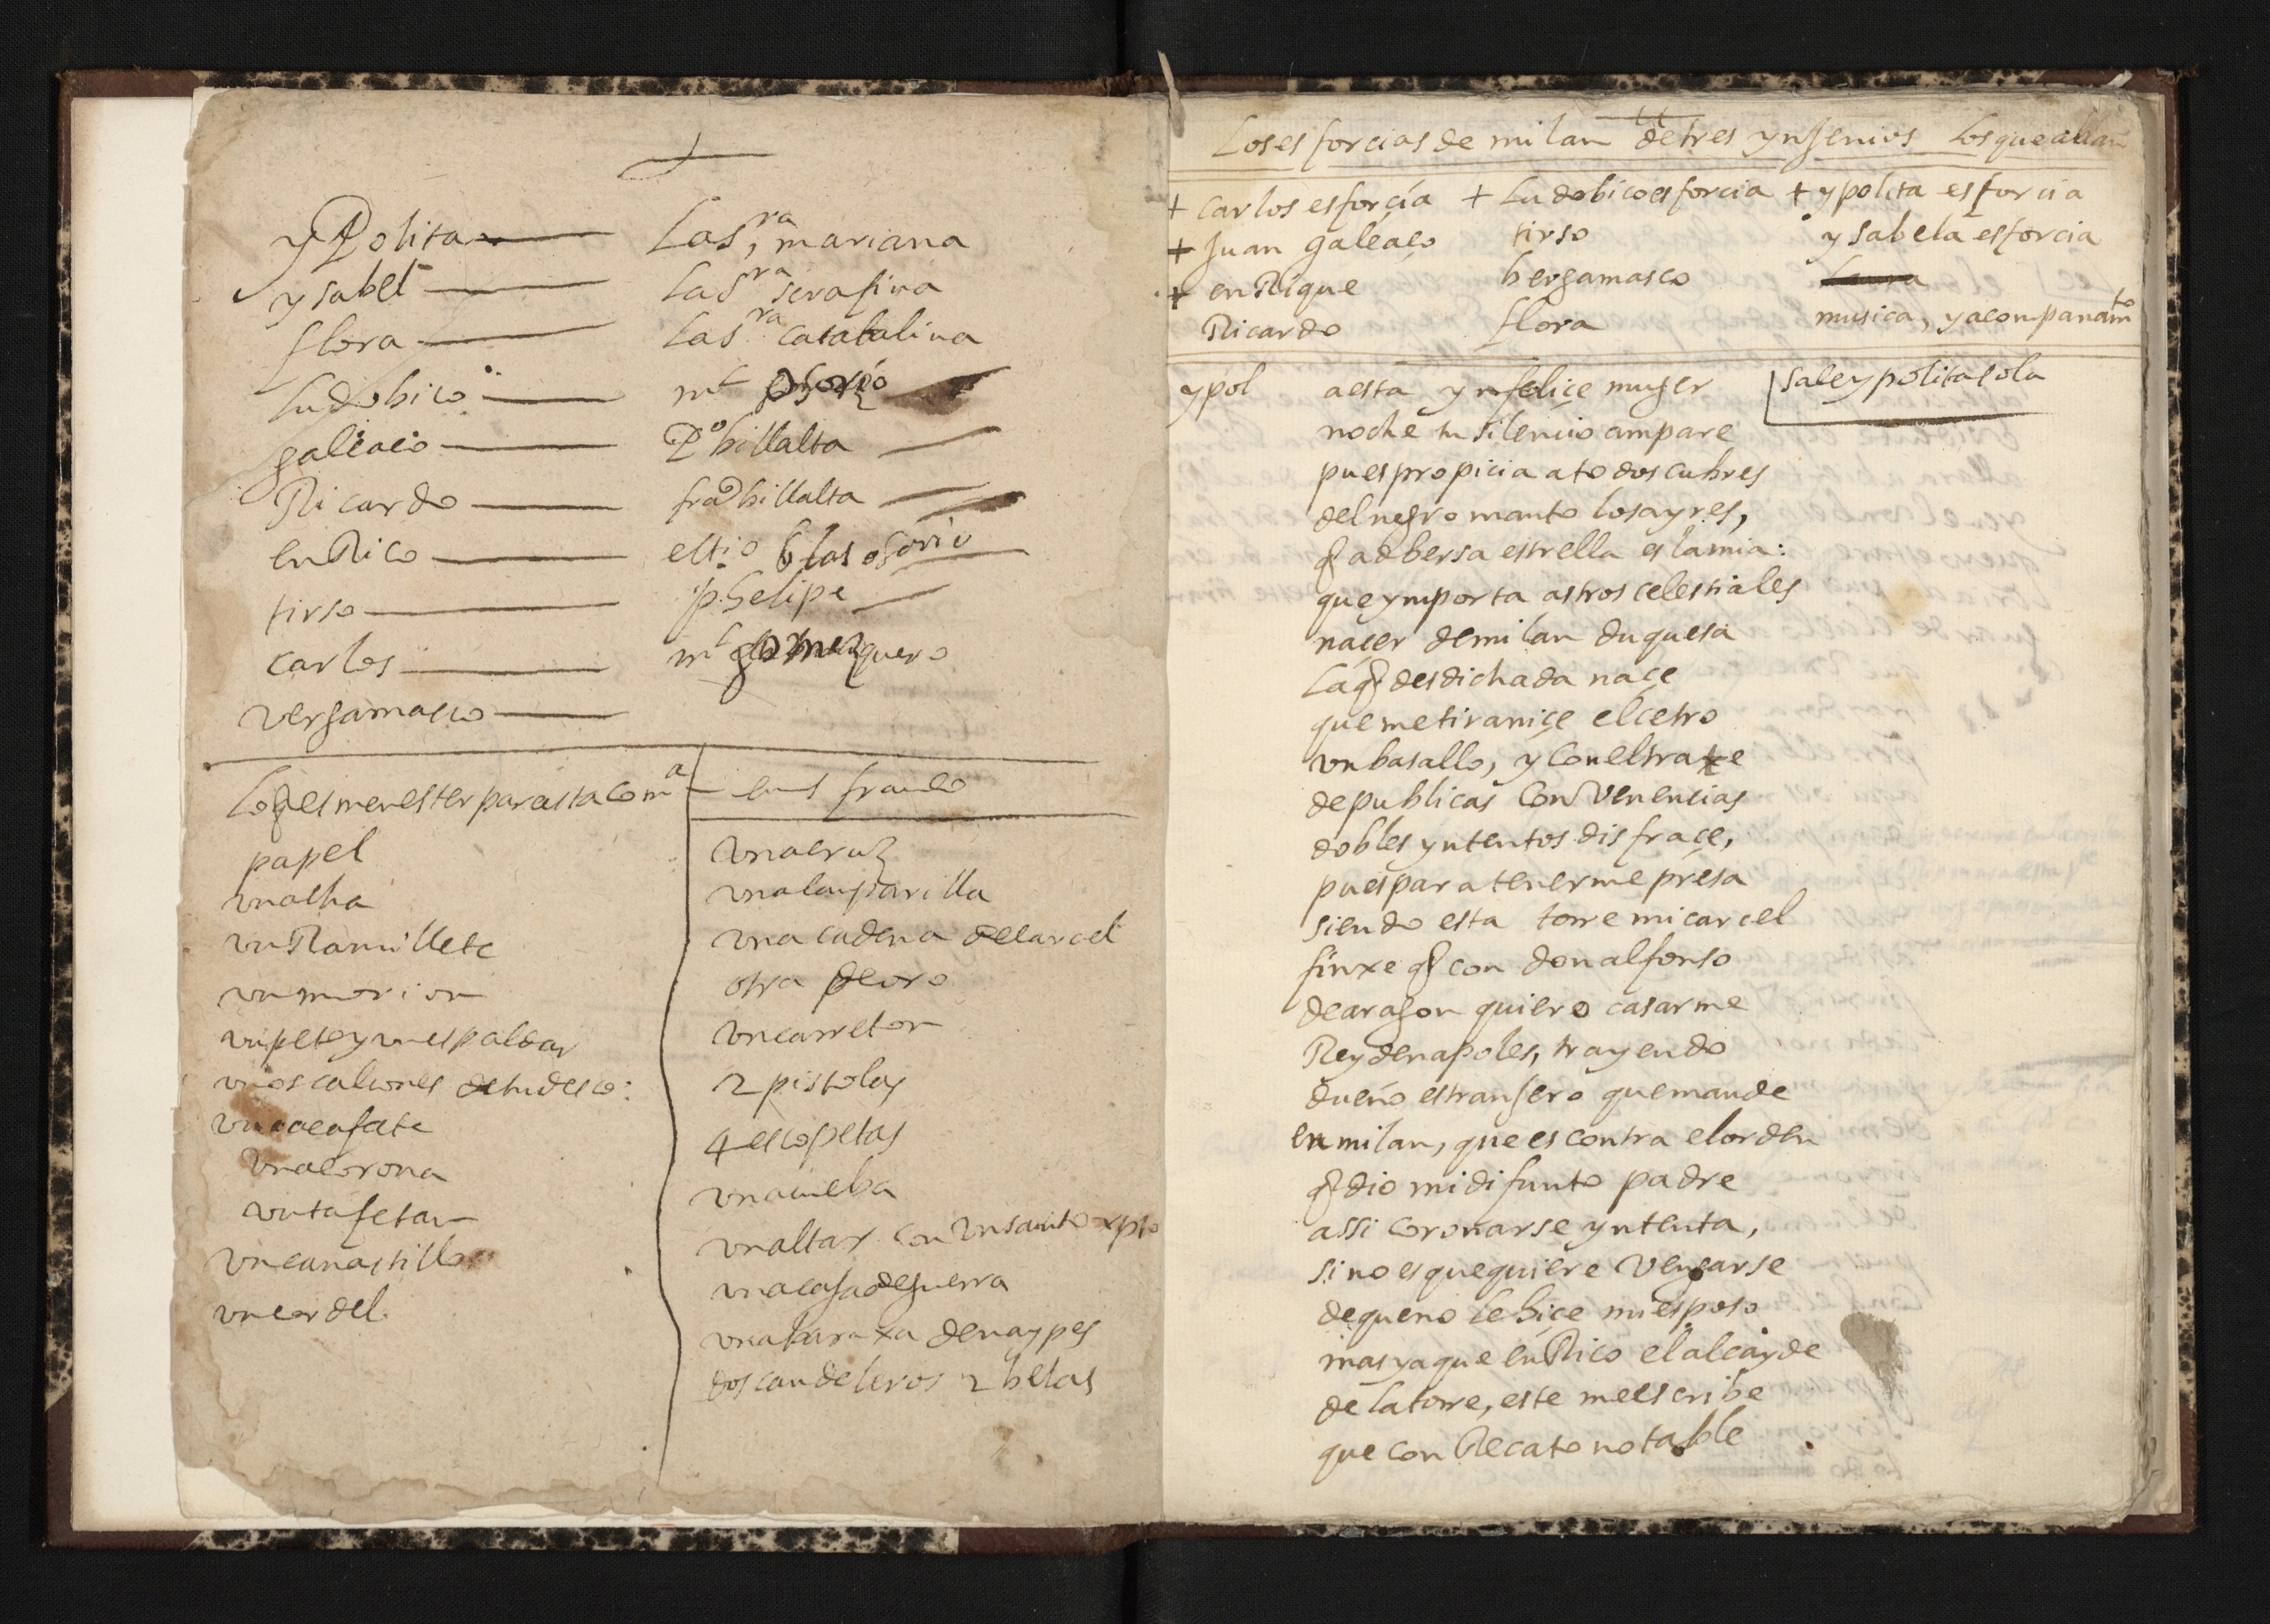 yPolita — La s.ra mariana
ysabel — La sra serafina
flora — La sra catatalina
Ludobico — ml osorio
galeaço — Po billalta
Ricardo — franco billalta
enRico — el tio blas osorio
tirso — phelipe
carlos — ml gomez
vergamasco —
Lo q es menester para esta coma
papel
vn acha
vn Ramillete
vn morion
vn peto y vn espaldar
vnos calçones de tudesco:
vn açafate
vna corona
vn tafetan
vn canastillo
vn cordel
vna cruz
vna lamparilla
vna cadena de carcel
otra de oro
vn carreton
2 pistolas
4 escopetas
vna cueba
vn altar con vn santo xpto
vna caja de guerra
vna baraxa de naypes
dos candeleros 2 belas
Los esforcias de milan de tres ynjenios Los que ablan
+ carlos esforçia + Ludobico esforcia + ypolita esforcia
+ Juan galeaço tirso ysabela esforcia
+ enRique bergamasco Laura
Ricardo flora musica, y acompanamto
ypol a esta ynfeliçe muger sale ypolita sola
noche tu silencio ampare
pues propicia a todos cubres
del negro manto los ayres,
q adbersa estrella es la mia:
que ymporta astros celestiales
naçer de milan duquesa
La q desdichada naçe
que me tiraniçe el cetro
vn basallo, y con el traxe
de publicas conVenencias
dobles yntentos disfraçe,
pues para tenerme presa
siendo esta torre mi carcel
finxe q con don alfonso
de aragon quiero casarme
Rey de napoles, trayendo
dueño estranjero que mande
en milan, que es contra el orden
q dio mi difunto padre
assi coronarse yntenta,
si no es que quiere Vengarse
de que no le hiçe mi esposo
mas ya que enRico el alcayde
de la torre, este me escribe
que con Recato notable